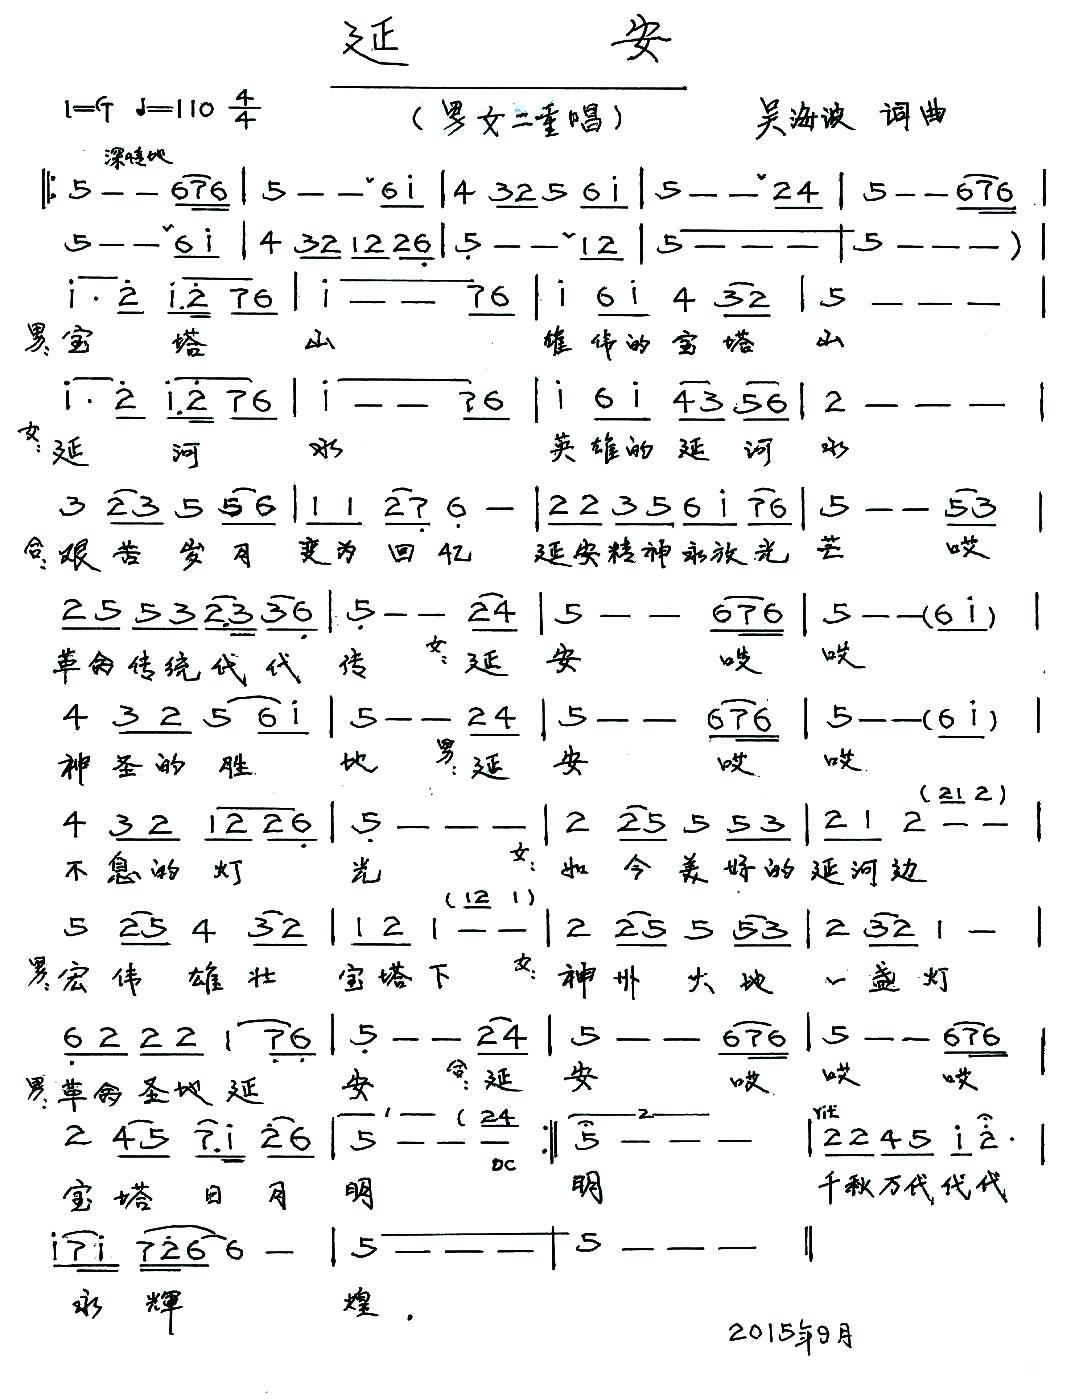 延 安
1=G ♩=110 4/4 （男女二重唱） 吴海波 词曲
深情地
‖: 5 — — 676 | 5 — — ˇ 6i | 4 32 5 6i | 5 — — ˇ 24 | 5 — — 676 |
5 — — ˇ 6i | 4 32 12 26 | 5 — — ˇ 12 | 5 — — — | 5 — — — ) |
i · 2 i.2 76 | i — — 76 | i 6i 4 32 | 5 — — — |
男: 宝 塔 山 雄伟的宝塔 山
i · 2 i.2 76 | i — — 76 | i 6i 43 56 | 2 — — — |
女: 延 河 水 英雄的延河 水
3 23 5 56 | 11 27 6 — | 22 35 6i 76 | 5 — — 53 |
合: 艰苦岁月 变为回忆 延安精神永放光 芒 哎
25 53 2.3 36 | 5 — — 24 | 5 — — 676 | 5 — — (6i) |
革命传统代代 传 女: 延 安 哎 哎
4 32 5 6i | 5 — — 24 | 5 — — 676 | 5 — — (6i) |
神圣的胜 地 男: 延 安 哎 哎
(21 2)
4 32 12 26 | 5 — — — | 2 25 5 53 | 21 2 — — |
不息的灯 光 女: 如今美好的延河边
(12 1)
5 25 4 32 | 12 1 — — | 2 25 5 53 | 2 32 1 — |
男: 宏伟雄壮 宝塔下 女: 神州大地 一盏灯
62 22 1 76 | 5 — — 24 | 5 — — 676 | 5 — — 676 |
男: 革命圣地延 安 合: 延 安 哎 哎 哎
1 (24 2 rit
2 45 7.i 26 | 5 — — — :‖ 5 — — — | 22 45 i 2 · |
DC
宝塔日月 明 明 千秋万代代代
i7i 7266 — | 5 — — — | 5 — — — ‖
永辉 煌.
2015年9月